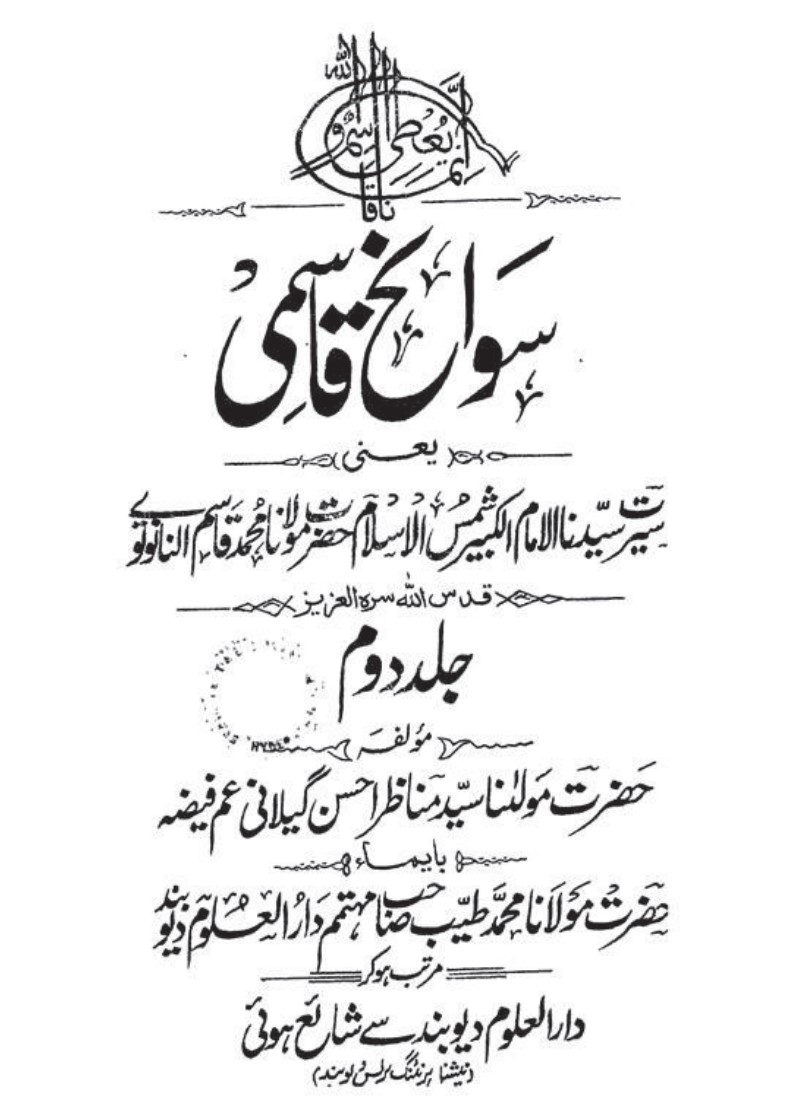 انما انا قاسم والله يعطى
سوانح قاسمی
یعنی
سیرت سیّدنا الامام الکبیر شمس الاسلام حضرت مولانا محمد قاسم النانوتوے
قدس اللہ سرہ العزیز
جلد دوم
مؤلفہ
حضرت مولٰنا سیّد مناظر احسن گیلانی عم فیضہ
بایماء
حضرت مولانا محمّد طیّب صاحب مہتمم دارالعلوم دیوبند
مرتب ہوکر
دارالعلوم دیوبند سے شائع ہوئی
(نیشنل پرنٹنگ پریس دیوبند)